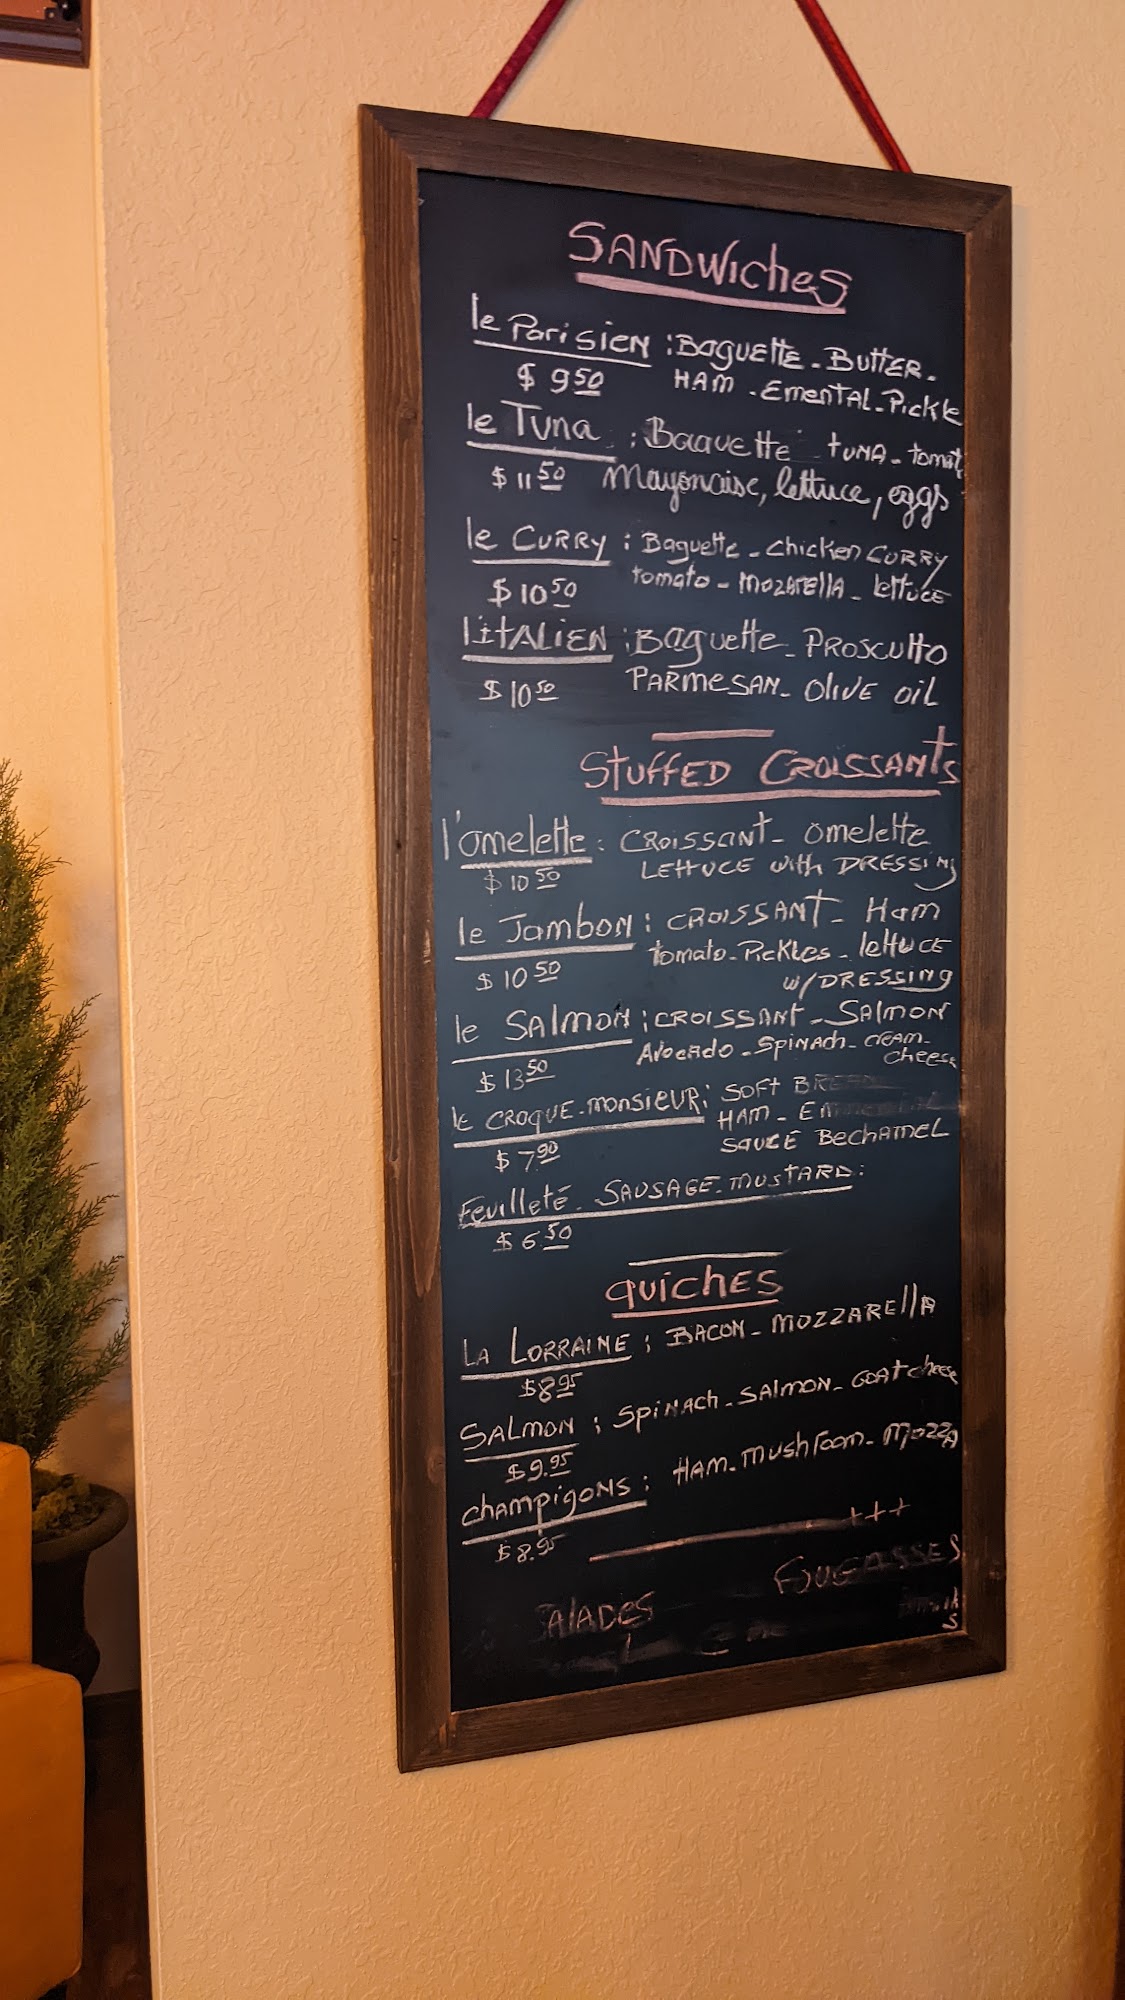 SANDWiches
le Parisien : Baguette - Butter -
$ 9 50 HAM - Emental - Pickle
le Tuna : Baguette tuna - tomat
$ 11 50 Mayonaise, lettuce, eggs
le CURRY : Baguette - chicken CURRY
$ 10 50 tomato - MOZARELLA - lettuce
l'iTALIEN : Baguette - PROSCUtto
$ 10 50 PARMeSAN - Olive oil
Stuffed CROISSANtS
l'omelette : CROISSANT - omelette
$ 10 50 LETTUCE with DRESSING
le Jambon : CROISSANT - Ham
tomato - Pickles - lettuce
$ 10 50 w/DRESSING
le SAlmoN : CROISSANT - SAlmoN
Avocado - spinach - cream -
$ 13 50 cheese
le CROQUE - monsieur : SOFT BREAD
HAM -
$ 7.90 SAUCE BechAmel
Feuilleté - SAUSAGE - mustARD :
$ 6.50
quiches
LA LORRAINE : BACON - mozzARella
$8 95
SALMON : SpiNAch - SAlmoN - GOAT cheese
$9.95
champigoNs : HAM - mushroom - Mozza
$8.95 +++
FOUGASSES
ALADES
S